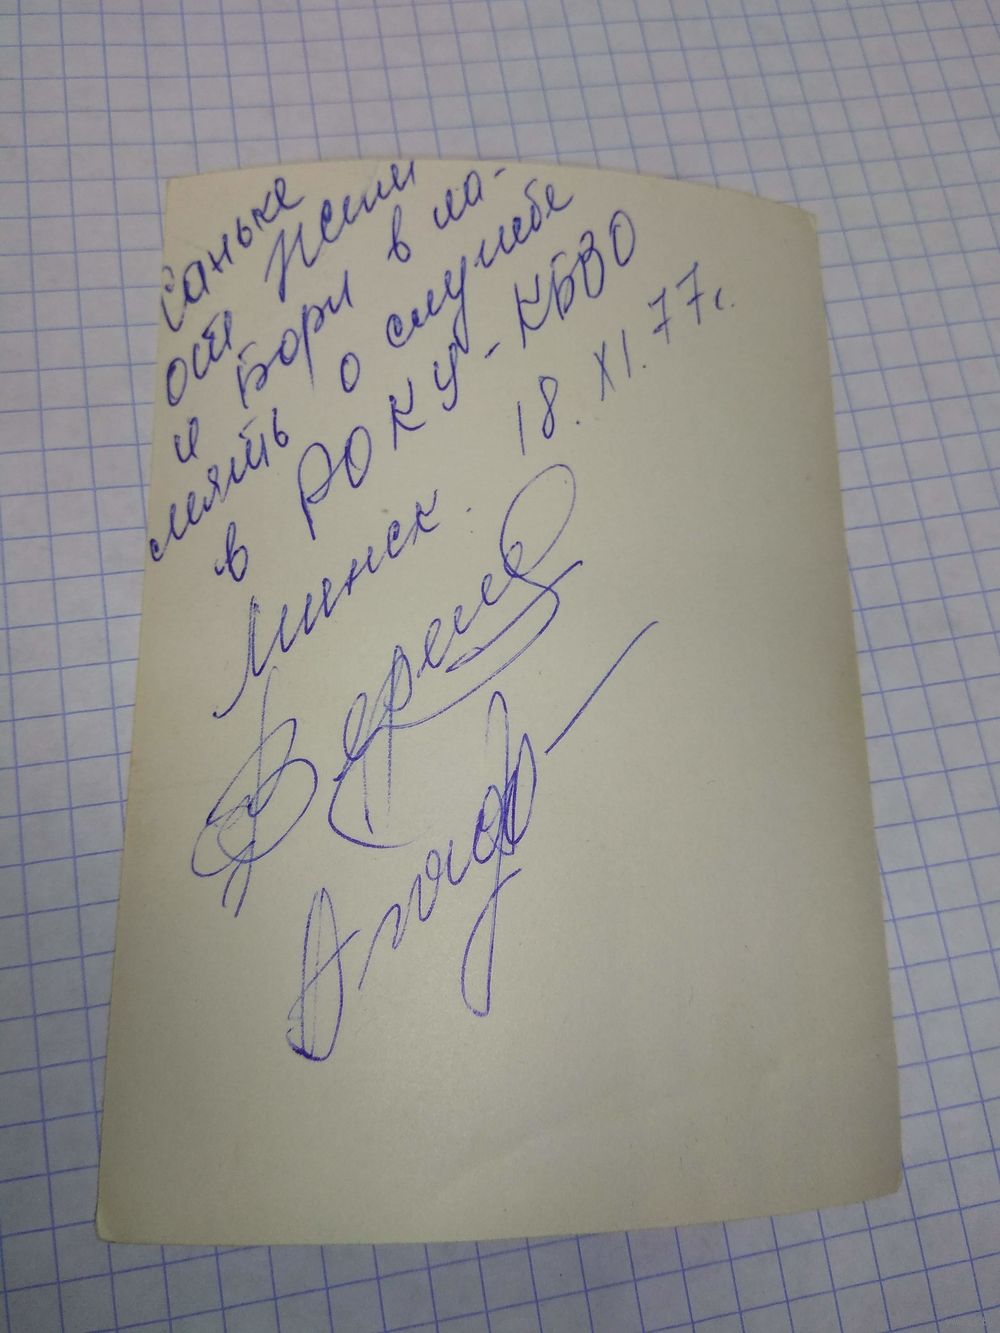 Саньке
от Жени
и Бори в па-
мять о службе
в РОКУ-КБВО
Минск. 18. XI. 77г.